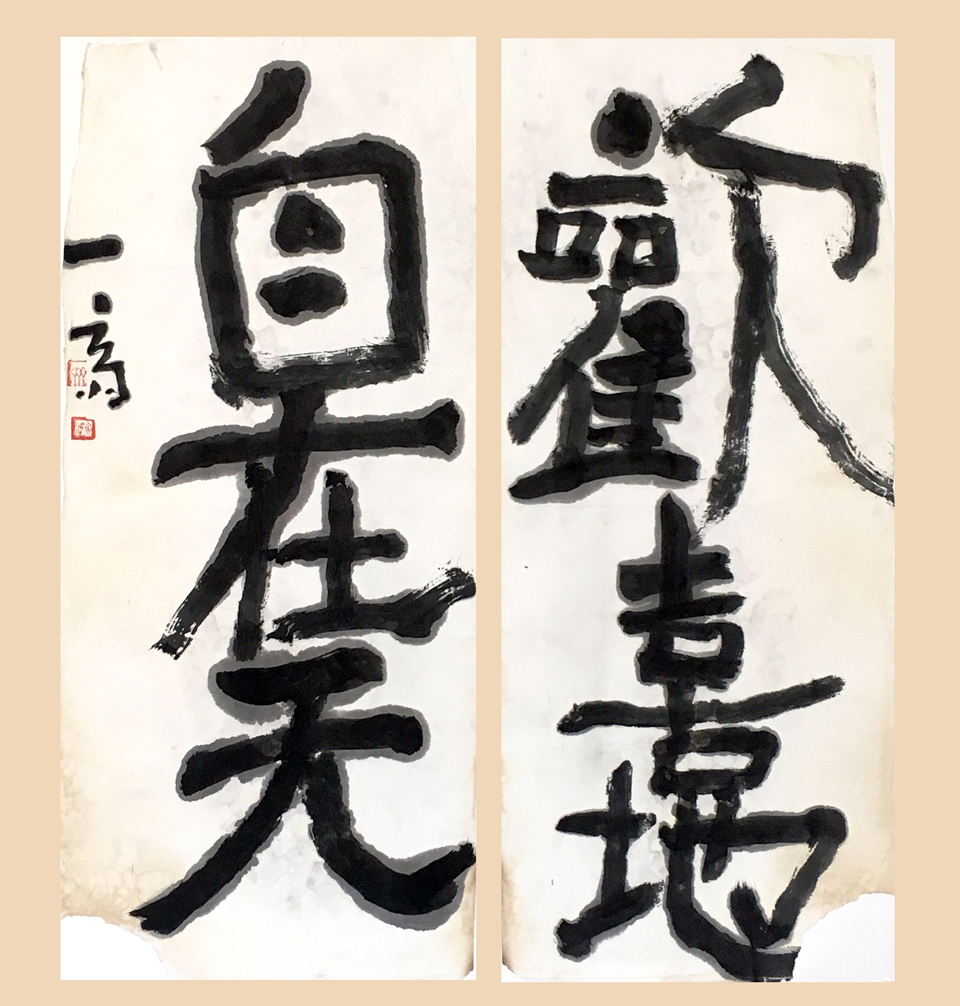 歡喜地
自在天
一